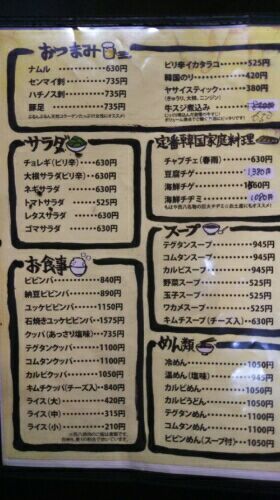 おつまみ
ナムル 630円
センマイ刺 735円
ハチノス刺 735円
豚足 735円
ピリ辛イカタラコ 525円
韓国のり 420円
ヤサイスティック 380円
(きゅうり、大根、ニンジン)
牛スジ煮込み
サラダ
チョレギ(ピリ辛) 630円
大根サラダ(ピリ辛) 630円
ネギサラダ 630円
トマトサラダ 525円
レタスサラダ 630円
ゴマサラダ 630円
定番韓国家庭料理
チャプチェ(春雨) 630円
豆腐チゲ
海鮮チゲ
海鮮チヂミ
スープ
テグタンスープ 945円
コムタンスープ 945円
カルビスープ 945円
野菜スープ 525円
玉子スープ 525円
ワカメスープ 525円
キムチスープ(チーズ入) 630円
お食事
ビビンバ 840円
納豆ビビンバ 890円
ユッケビビンバ 1150円
石焼きユッケビビンバ 1575円
クッパ(あっさり塩味) 735円
テグタンクッパ 1100円
コムタンクッパ 1100円
カルビクッパ 1050円
キムチクッパ(チーズ入) 840円
ライス(大) 420円
ライス(中) 315円
ライス(小) 210円
めん類
冷めん 1050円
温めん(塩味) 945円
カルビめん 1050円
カルビうどん 1050円
テグタンめん 1100円
コムタンめん 1100円
ビビンめん(スープ付) 1050円